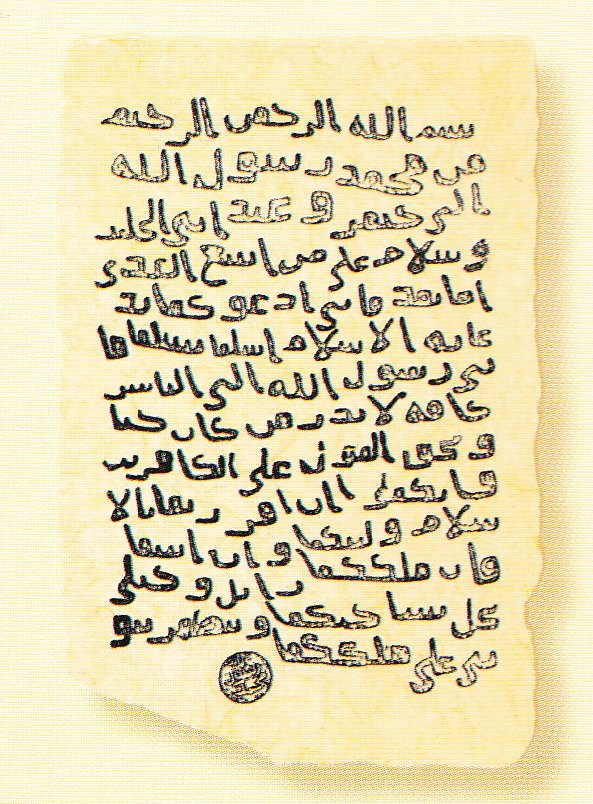 بسم الله الرحمن الرحيم
من محمد رسول الله
الى جيفر و عبد ابني الجلند
و سلام على من اتبع الهدى
اما بعد فاني ادعو كما بد
عايه الاسلام اسلما تسلما فا
ني رسول الله الى الناس
كافه لانذر من كان حيا
و يحق القول على الكافرين
فانكما ان اقررتما بالا
سلام وليتكما و ان
فان ملككما زايل و خيلي
تحل بساحتكما و تظهر نبو
تي على ملككما